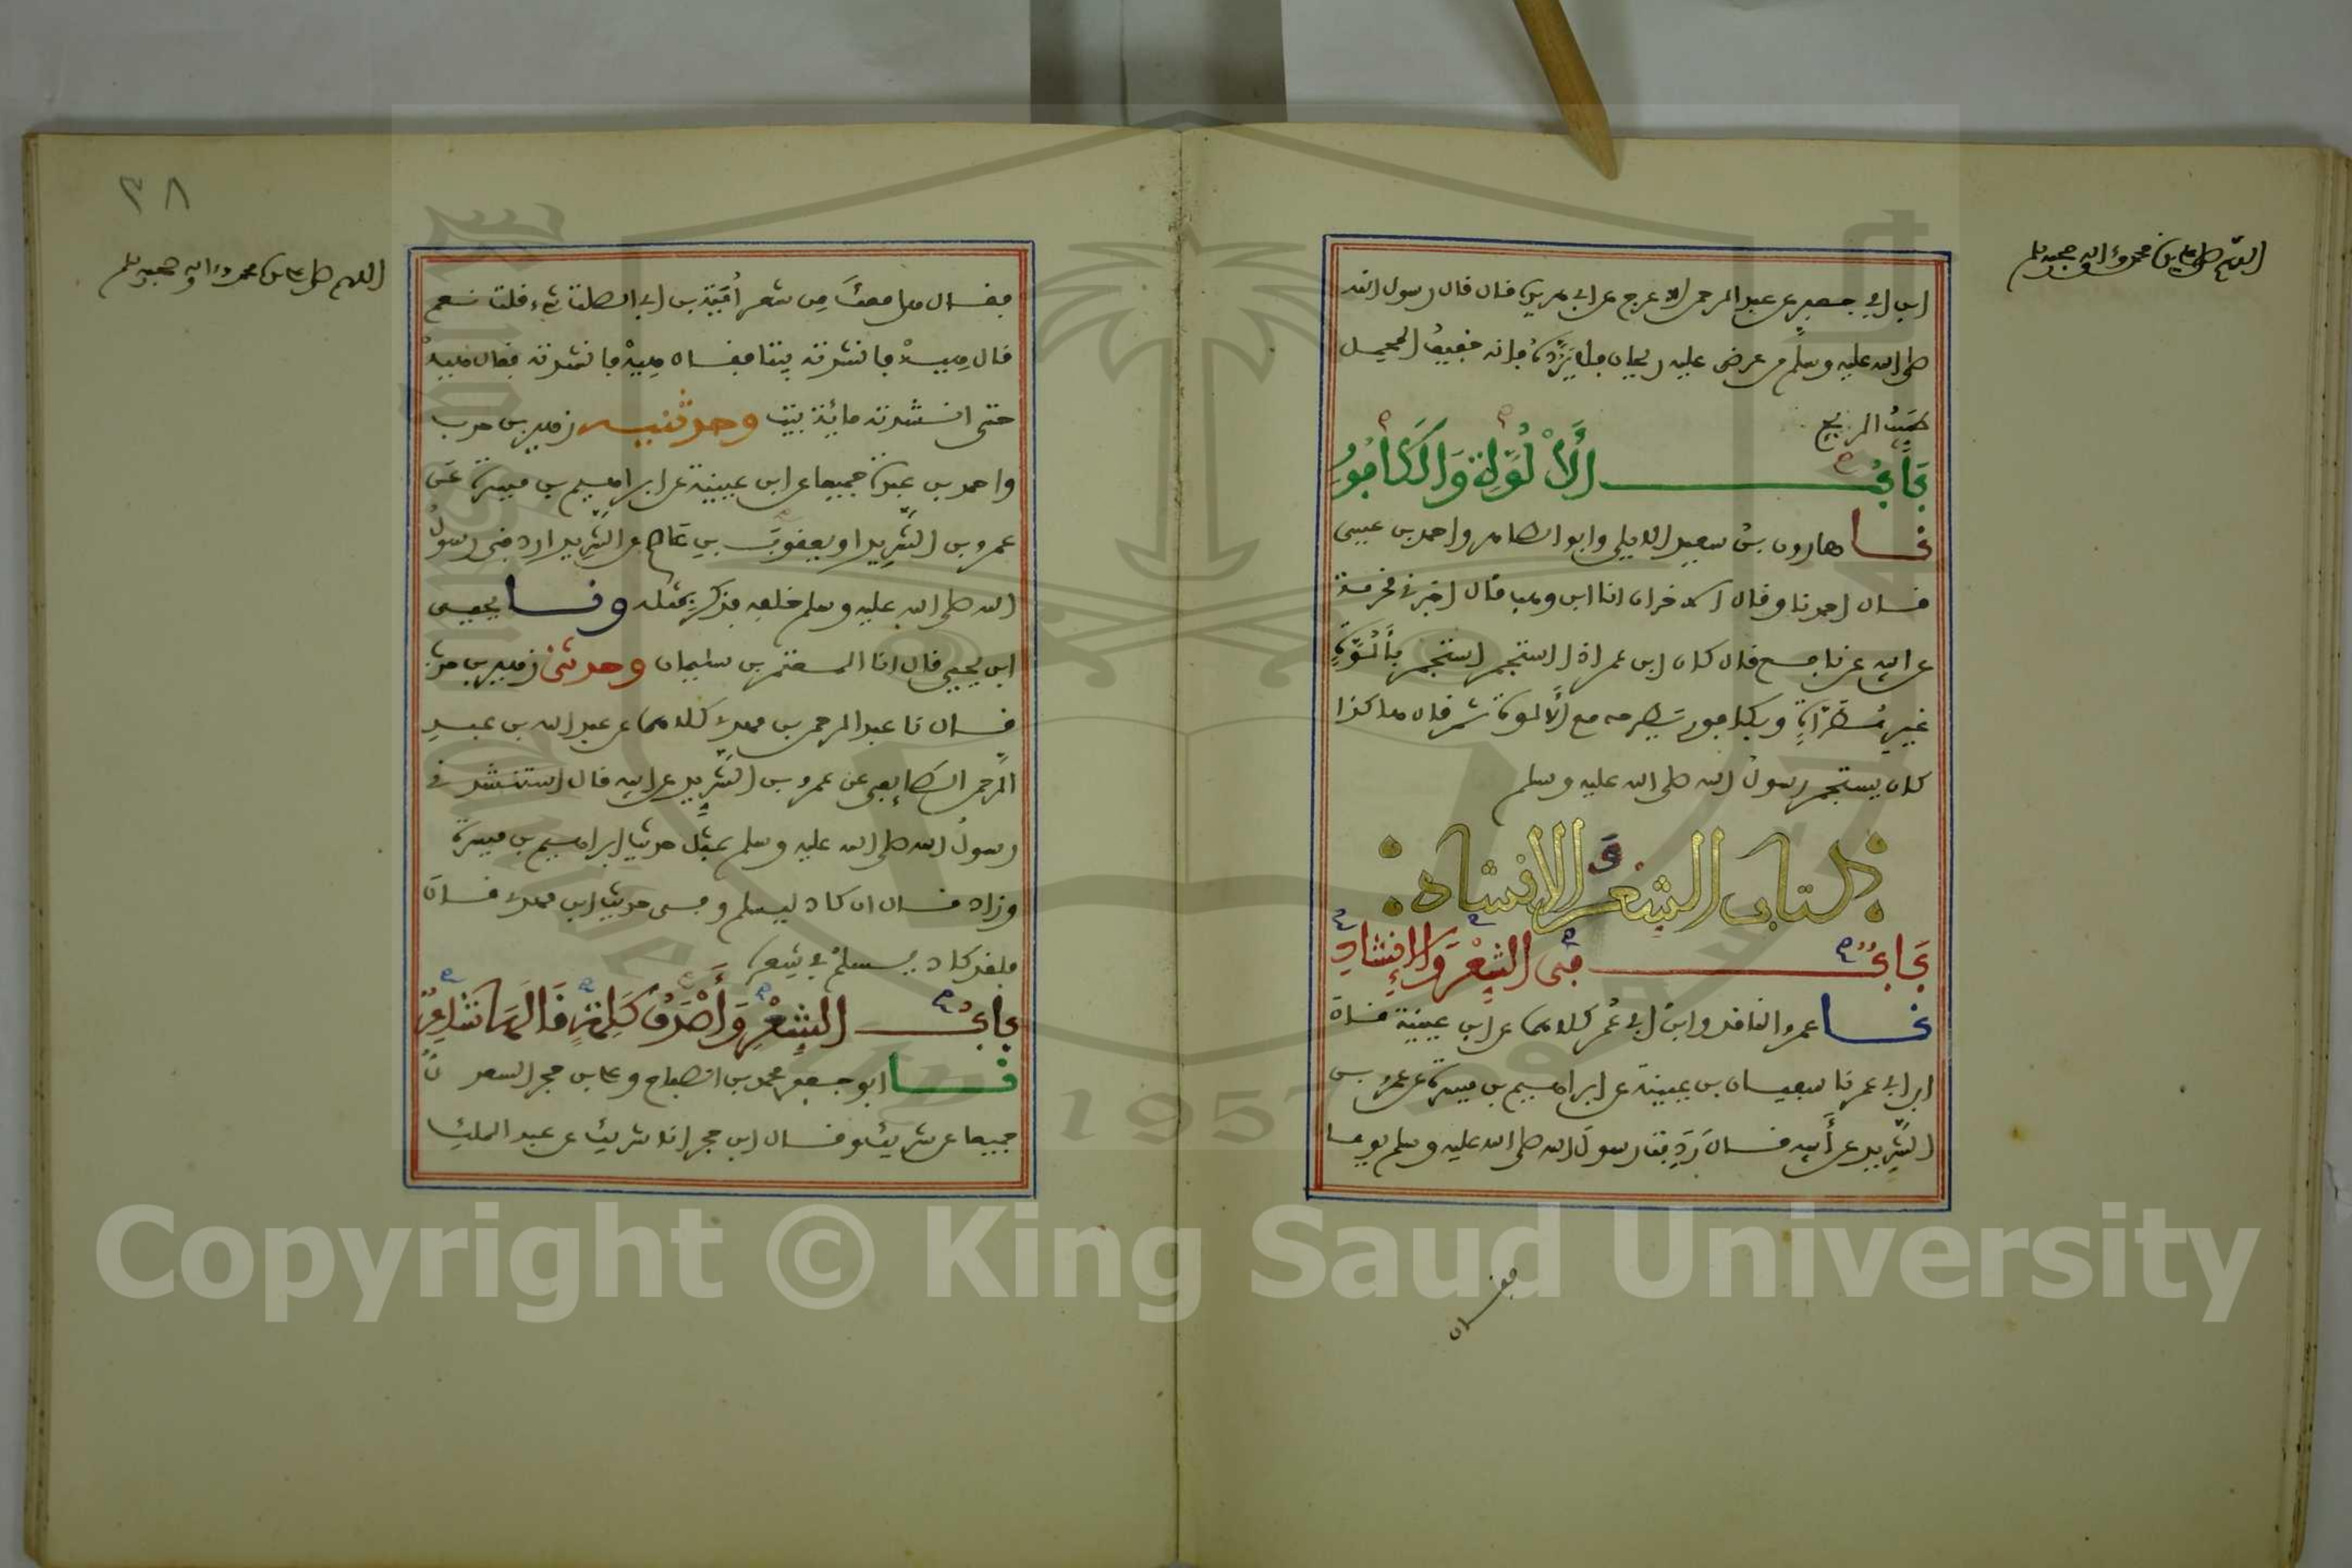 اللهم صل على محمد وءاله وصحبه وسلم
ابن ابي جعفر عن عبد الرحمن الاعرج عن ابي هريرة قال قال رسول الله
صلى الله عليه وسلم من عرض عليه ريحان فلا يرده فانه خفيف المحمل
طيب الريح
باب الألوة والكافور
نا هارون بن سعيد الايلي وابو الطاهر واحمد بن عيسى
قال احمد نا وقال الاخران انا ابن وهب قال اخبرني مخرمة
عن ابيه عن نافع قال كان ابن عمر اذا استجمر استجمر بألوة
غير مطراة وبكافور يطرحه مع الألوة ثم قال هكذا
كان يستجمر رسول الله صلى الله عليه وسلم
كتاب الشعر والانشاد
باب في الشعر والإنشاد
نا عمرو الناقد وابن ابي عمر كلاهما عن ابن عيينة قال
ابن ابي عمر نا سفيان بن عيينة عن ابراهيم بن ميسرة عن عمرو بن
الشريد عن أبيه قال ردفت رسول الله صلى الله عليه وسلم يوما
فقال
٣٨
اللهم صل على محمد وءاله وصحبه وسلم
فقال هل معك من شعر أمية بن ابي الصلت شيء قلت نعم
قال هيه فانشدته بيتا فقال هيه فانشدته فقال هيه
حتى انشدته مائة بيت وحدثنيه زهير بن حرب
واحمد بن عبدة جميعا عن ابن عيينة عن ابراهيم بن ميسرة عن
عمرو بن الشريد او يعقوب بن عاصم عن الشريد اردفني رسول
الله صلى الله عليه وسلم خلفه فذكر بمثله ونا يحيى
ابن يحيى قال انا المعتمر بن سليمان وحدثني زهير بن حرب
قال نا عبد الرحمن بن مهدي كلاهما عن عبد الله بن عبد
الرحمن الطايفي عن عمرو بن الشريد عن ابيه قال استنشدني
رسول الله صلى الله عليه وسلم بمثل حديث ابراهيم بن ميسرة
وزاد قال ان كاد ليسلم وفي حديث ابن مهدي قال
فلقد كاد يسلم في شعره
باب الشعر وأصدق كلمة قالها شاعر
نا ابو جعفر محمد بن الصباح وعلي بن حجر السعد
جميعا عن شريك وقال ابن حجر انا شريك عن عبد الملك
Copyright © King Saud University
1957